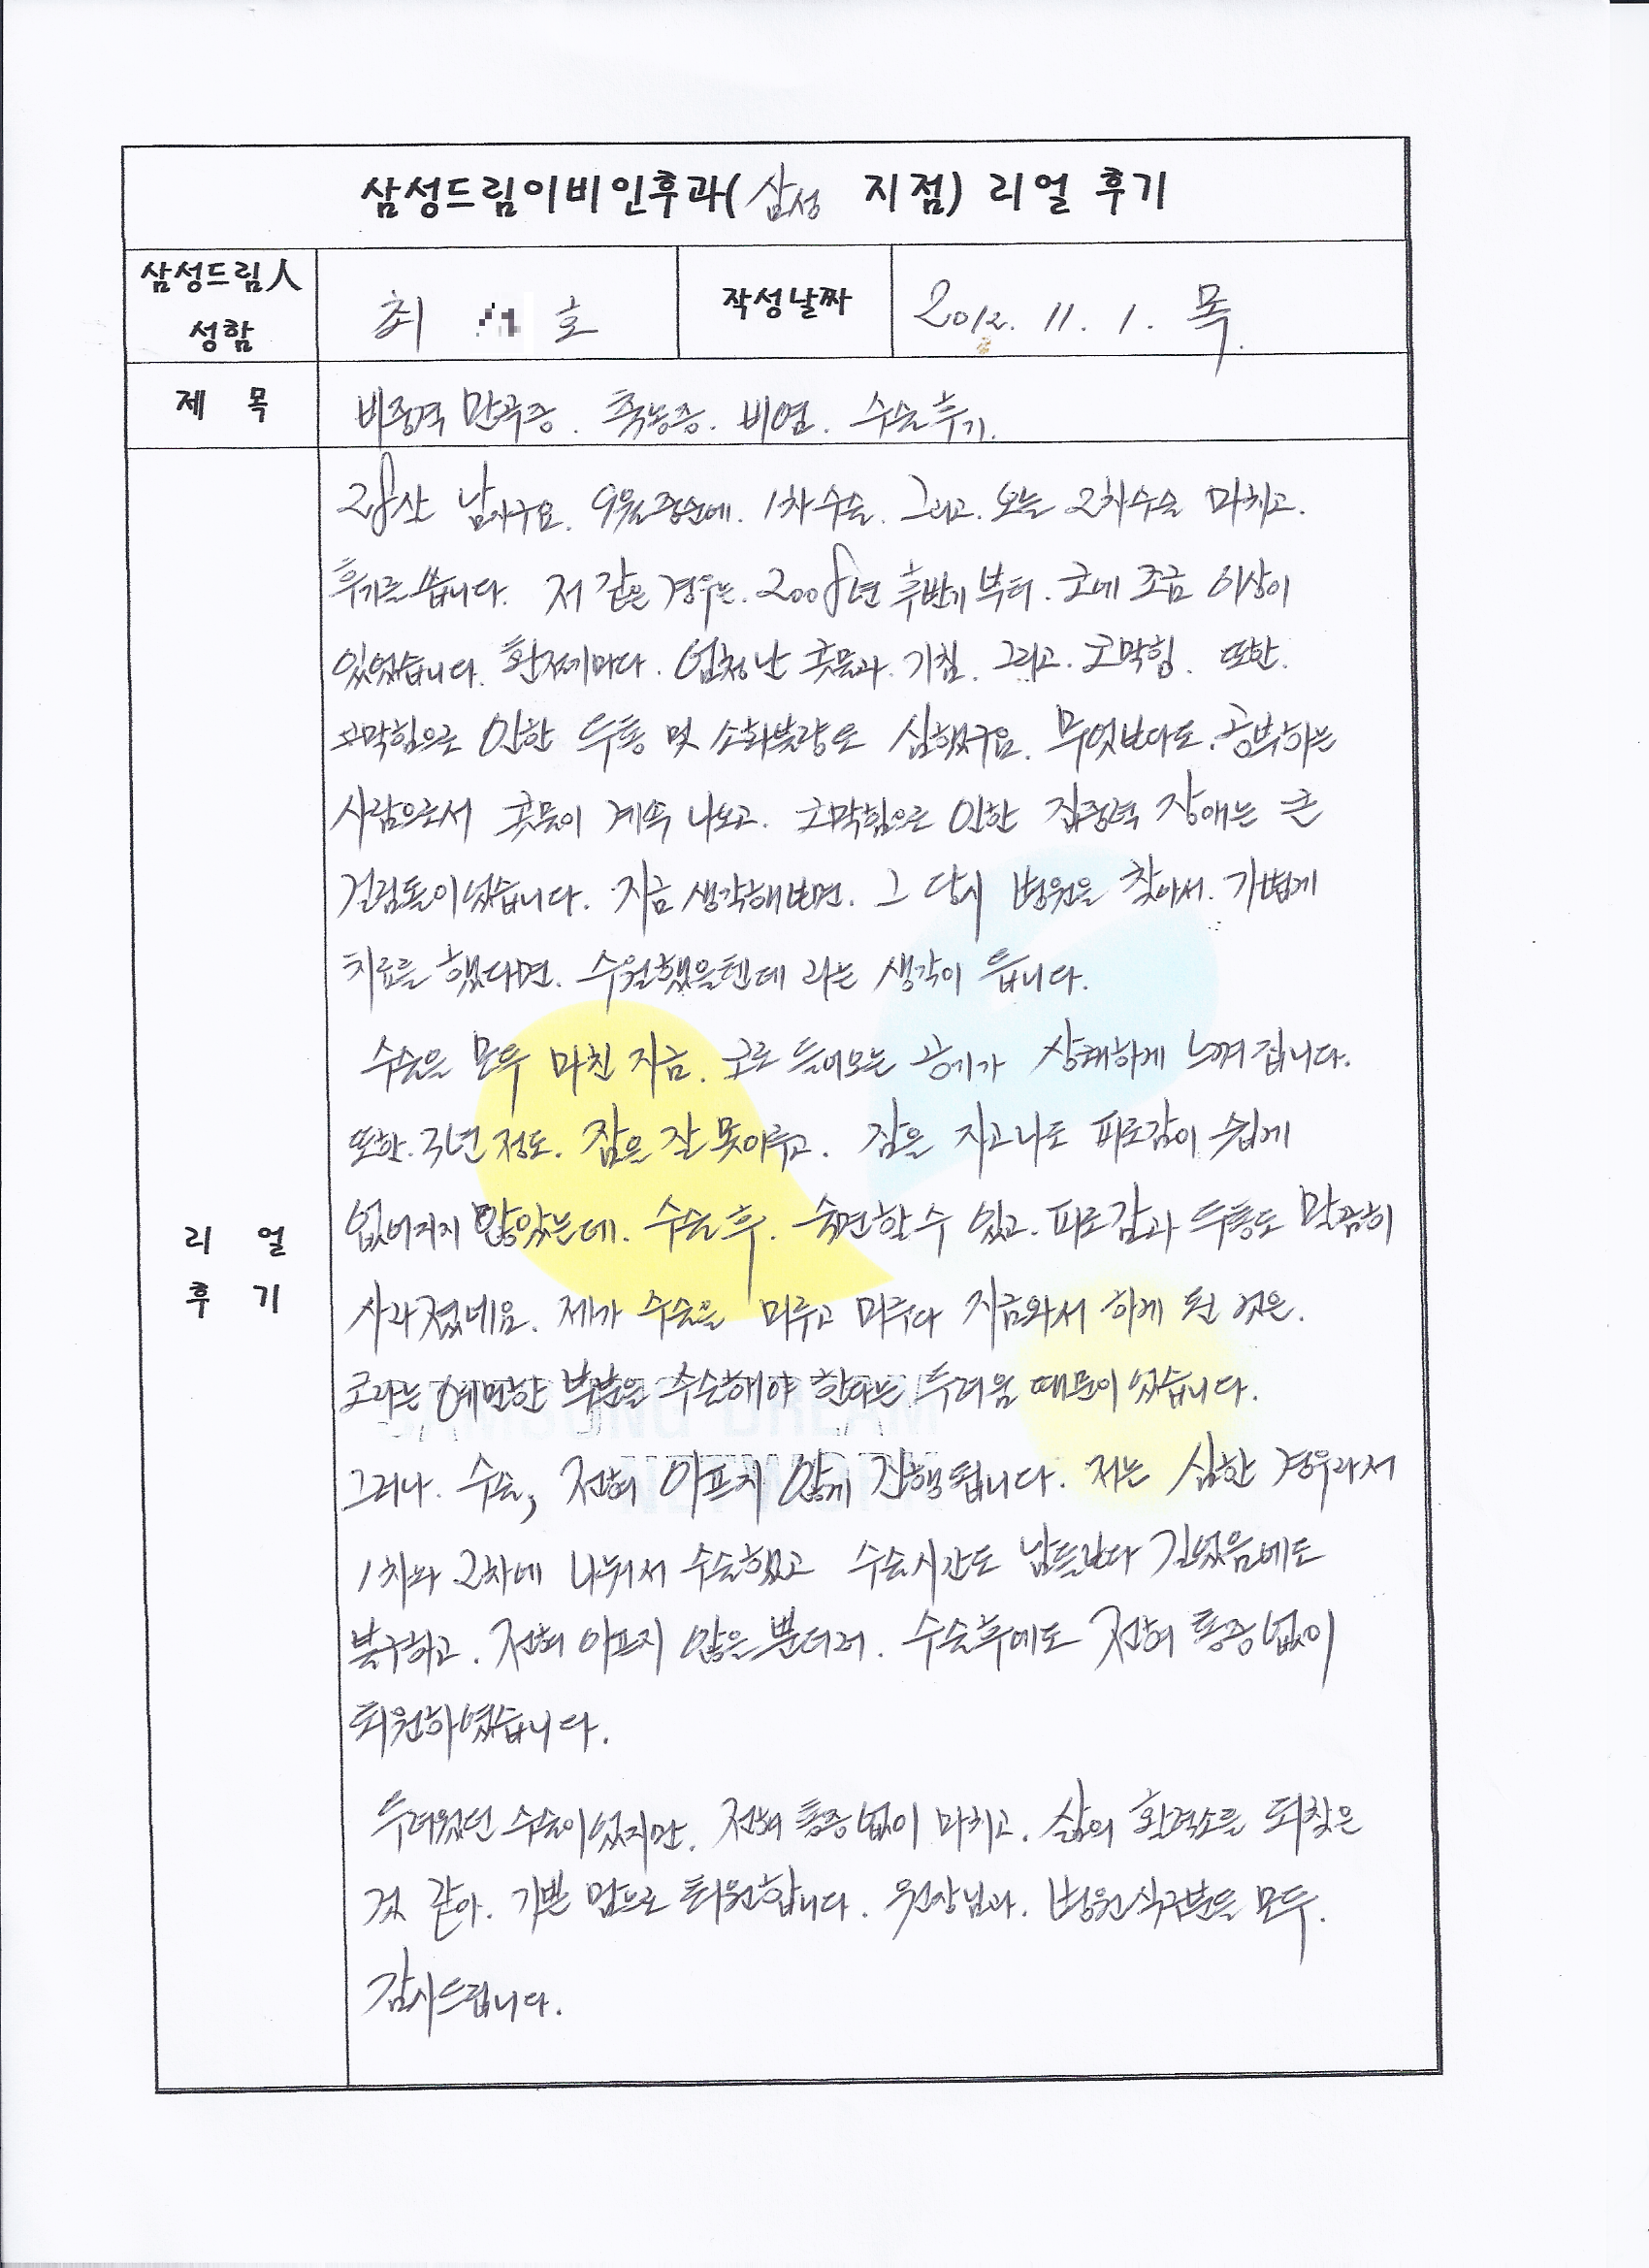 삼성드림이비인후과(삼성 지점) 리얼 후기
삼성드림人
성함
최 호
작성날짜
2012. 11. 1. 목.
제 목
비중격 만곡증. 축농증. 비염. 수술후기.
리 얼
후 기
28살 남자구요. 9월중순에. 1차수술. 그리고. 오늘 2차수술 마치고.
후기를 씁니다. 저 같은 경우는. 2008년 후반기부터. 코에 조금 이상이
있었습니다. 환절기마다. 엄청난 콧물과. 기침. 그리고. 코막힘. 또한.
코막힘으로 인한 두통 및 소화불량도 심했구요. 무엇보다도. 공부하는
사람으로서 콧물이 계속 나오고. 코막힘으로 인한 집중력 장애는 큰
걸림돌이었습니다. 지금 생각해보면. 그 당시 병원을 찾아서. 가볍게
치료를 했다면. 수월했을텐데 라는 생각이 듭니다.
수술을 모두 마친 지금. 코로 들어오는 공기가 상쾌하게 느껴집니다.
또한. 몇년 정도. 잠을 잘 못이루고. 잠을 자고나도 피로감이 쉽게
없어지지 않았는데. 수술 후. 숙면할 수 있고. 피로감과 두통도 말끔히
사라졌네요. 제가 수술을 미루고 미루다 지금와서 하게 된 것은.
코라는 예민한 부분을 수술해야 한다는 두려움 때문이었습니다.
그러나. 수술, 전혀 아프지 않게 진행됩니다. 저는 심한 경우라서
1차와 2차에 나눠서 수술했고 수술시간도 남들보다 길었음에도
불구하고. 전혀 아프지 않을 뿐더러. 수술후에도 전혀 통증없이
퇴원하였습니다.
두려웠던 수술이었지만. 전혀 통증없이 마치고. 삶의 활력소를 되찾은
것 같아. 기쁜 맘으로 퇴원합니다. 원장님과. 병원식구분들 모두.
감사드립니다.
SAMSUNG DREAM
NETWORK